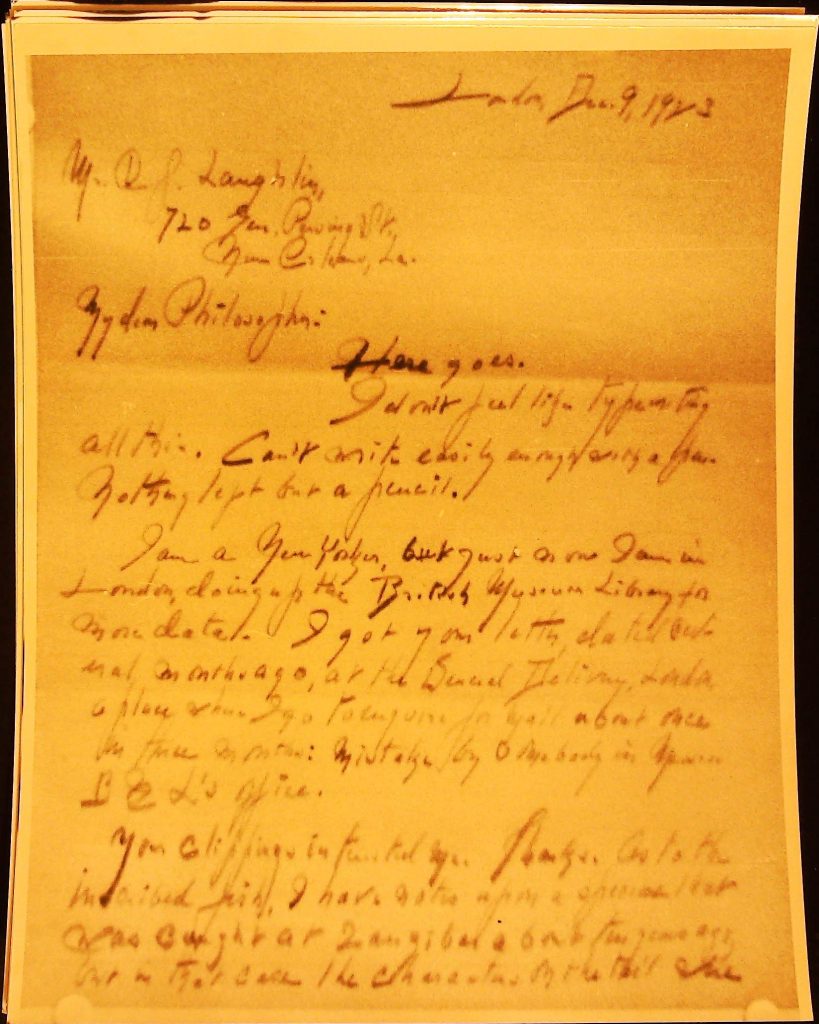 London, Dec. 9, 1923
Mr. R. J. Laughlin,
720 Gen. Pershing St.,
New Orleans, La.
My dear Philosopher:
Here goes.
I don't feel like typewriting
all this. Can't write easily enough with a pen.
Nothing left but a pencil.
I am a New Yorker, but just now I am in
London, doing up the British Museum Library for
more data. I got your letter, dated
months ago, at the General Delivery, London
a place where I go to enquire for mail about once
in three months: Mistake by somebody in Messrs
B & L's office.
Your clippings interested me. Thanks. As to the
inscribed fish, I have notes upon a specimen that
was caught at Zanzibar about ten years ago
but in that case the characters on the tail